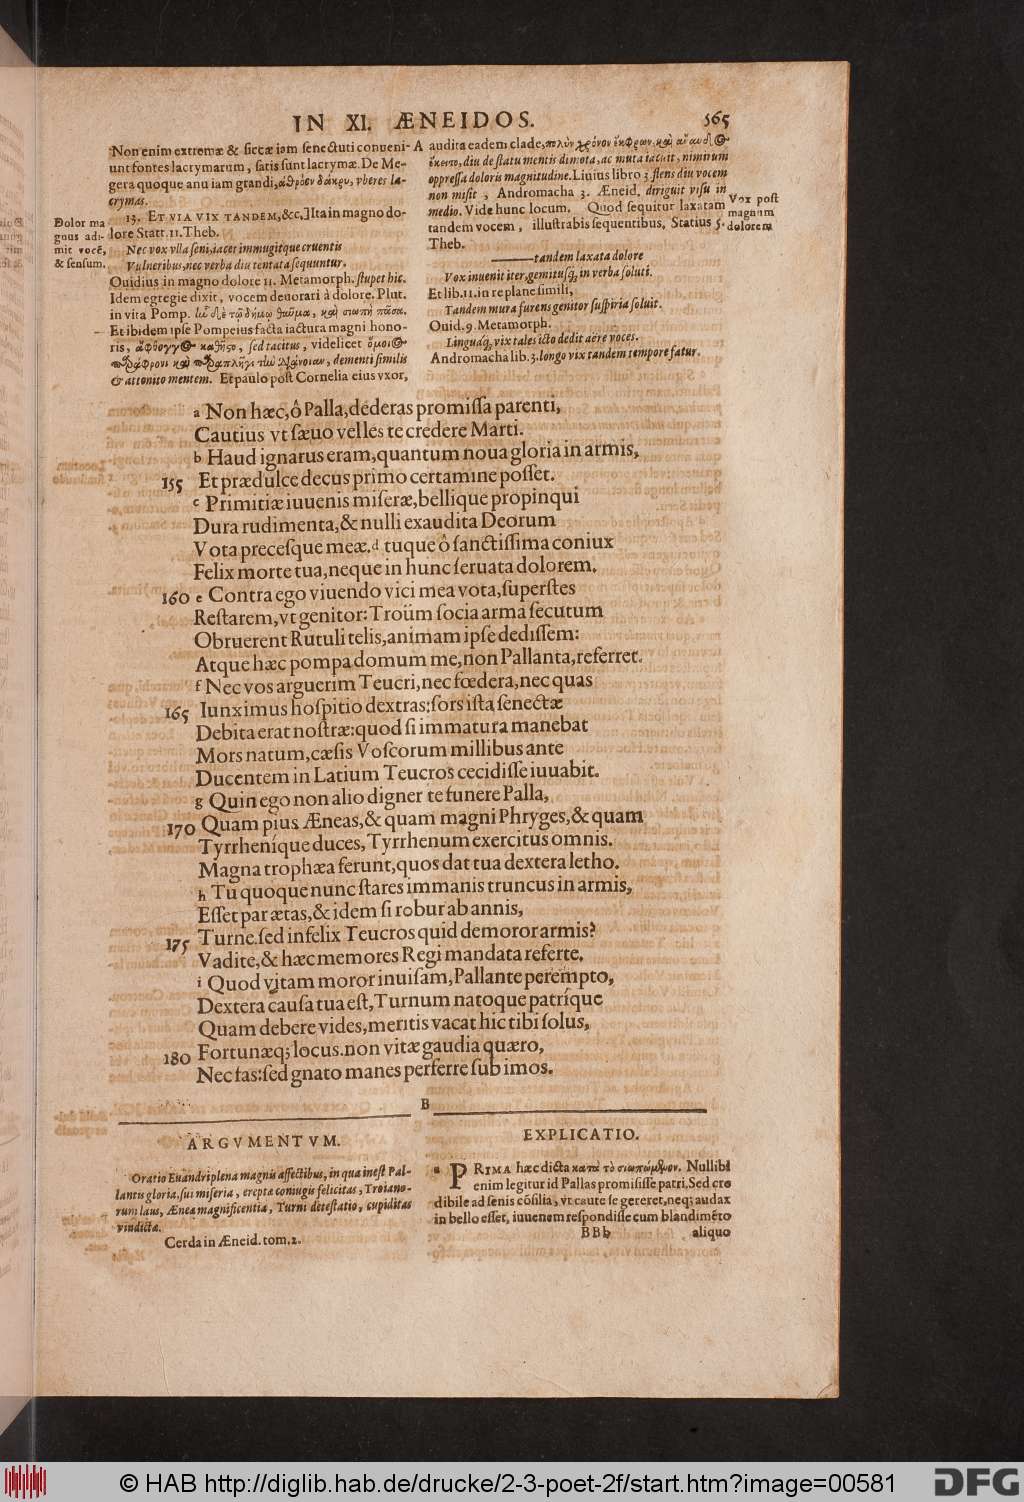 IN XI. ÆNEIDOS.
365
Non enim extremæ & siccæ iam senectuti conueni-
unt fontes lacrymarum, satis sunt lacrymæ. De Me-
gera quoque anu iam grandi, ἀθρόον δάκρυ, vberes la-
crymas.
13. ET VIA VIX TANDEM, &c.] Ita in magno do-
lore Statt. 11. Theb.
Nec vox vlla seni, iacet immugitque cruentis
Vulneribus, nec verba diu tentata sequuntur.
Ouidius in magno dolore 11. Metamorph. stupet hic.
Idem egregie dixit, vocem deuorari à dolore. Plut.
in vita Pomp. καὶ σιωπὴ πᾶσα.
Et ibidem ipse Pompeius facta iactura magni hono-
ris, ἄφθογγος καθῆστο, sed tacitus, videlicet ὅμοιος
παράφρονι καὶ παραπλῆγι τὴν διάνοιαν, dementi similis
& attonito mentem. Et paulo post Cornelia eius vxor,
Dolor ma
gnus adi-
mit vocē,
& sensum.
A
audita eadem clade, πολὺν χρόνον ἔκφρων καὶ ἄναυδος
ἔκειτο, diu de statu mentis dimota, ac muta iacuit, nimirum
oppressa doloris magnitudine. Liuius libro 3 flens diu vocem
non misit, Andromacha 3. Æneid. diriguit visu in
medio. Vide hunc locum. Quod sequitur laxatam
tandem vocem, illustrabis sequentibus. Statius 5.
Theb.
——tandem laxata dolore
Vox inuenit iter, gemitusq́, in verba soluti.
Et lib. 11. in re plane simili,
Tandem mura furens genitor suspiria soluit.
Ouid. 9. Metamorph.
Linguaq́, vix tales icto dedit aëre voces.
Andromacha lib. 3. longo vix tandem tempore fatur.
Vox post
magnum
dolorem
a Non hæc, ô Palla, dederas promissa parenti,
Cautius vt sæuo velles te credere Marti.
b Haud ignarus eram, quantum noua gloria in armis,
155 Et prædulce decus primo certamine posset.
c Primitiæ iuuenis miseræ, bellique propinqui
Dura rudimenta, & nulli exaudita Deorum
Vota precesque meæ. d tuque ô sanctissima coniux
Felix morte tua, neque in hunc seruata dolorem.
160 e Contra ego viuendo vici mea vota, superstes
Restarem, vt genitor: Troüm socia arma secutum
Obruerent Rutuli telis, animam ipse dedissem:
Atque hæc pompa domum me, non Pallanta, referret.
f Nec vos arguerim Teucri, nec fœdera, nec quas
165 Iunximus hospitio dextras: sors ista senectæ
Debita erat nostræ: quod si immatura manebat
Mors natum, cæsis Voscorum millibus ante
Ducentem in Latium Teucros cecidisse iuuabit.
g Quin ego non alio digner te funere Palla,
170 Quam pius Æneas, & quam magni Phryges, & quam
Tyrrheníque duces, Tyrrhenum exercitus omnis.
Magna trophæa ferunt, quos dat tua dextera letho.
h Tu quoque nunc stares immanis truncus in armis,
Esset par ætas, & idem si robur ab annis,
175 Turne. sed infelix Teucros quid demoror armis?
Vadite, & hæc memores Regi mandata referte.
i Quod vitam moror inuisam, Pallante perempto,
Dextera causa tua est, Turnum natoque patríque
Quam debere vides, meritis vacat hic tibi solus,
180 Fortunæq; locus. non vitæ gaudia quæro,
Nec fas: sed gnato manes perferre sub imos.
B
ARGVMENTVM.
Oratio Euandri plena magnis affectibus, in qua inest Pal-
lantis gloria, sui miseria, erepta coniugis felicitas, Troiano-
rum laus, Æneæ magnificentia, Turni detestatio, cupiditas
vindictæ.
Cerda in Æneid. tom. 2.
EXPLICATIO.
a PRIMA hæc dicta κατὰ τὸ σιωπώμενον. Nullibi
enim legitur id Pallas promisisse patri. Sed cre
dibile ad senis cōsilia, vt caute se gereret, neq; audax
in bello esset, iuuenem respondisse cum blandimēto
BBb
aliquo
© HAB http://diglib.hab.de/drucke/2-3-poet-2f/start.htm?image=00581
DFG